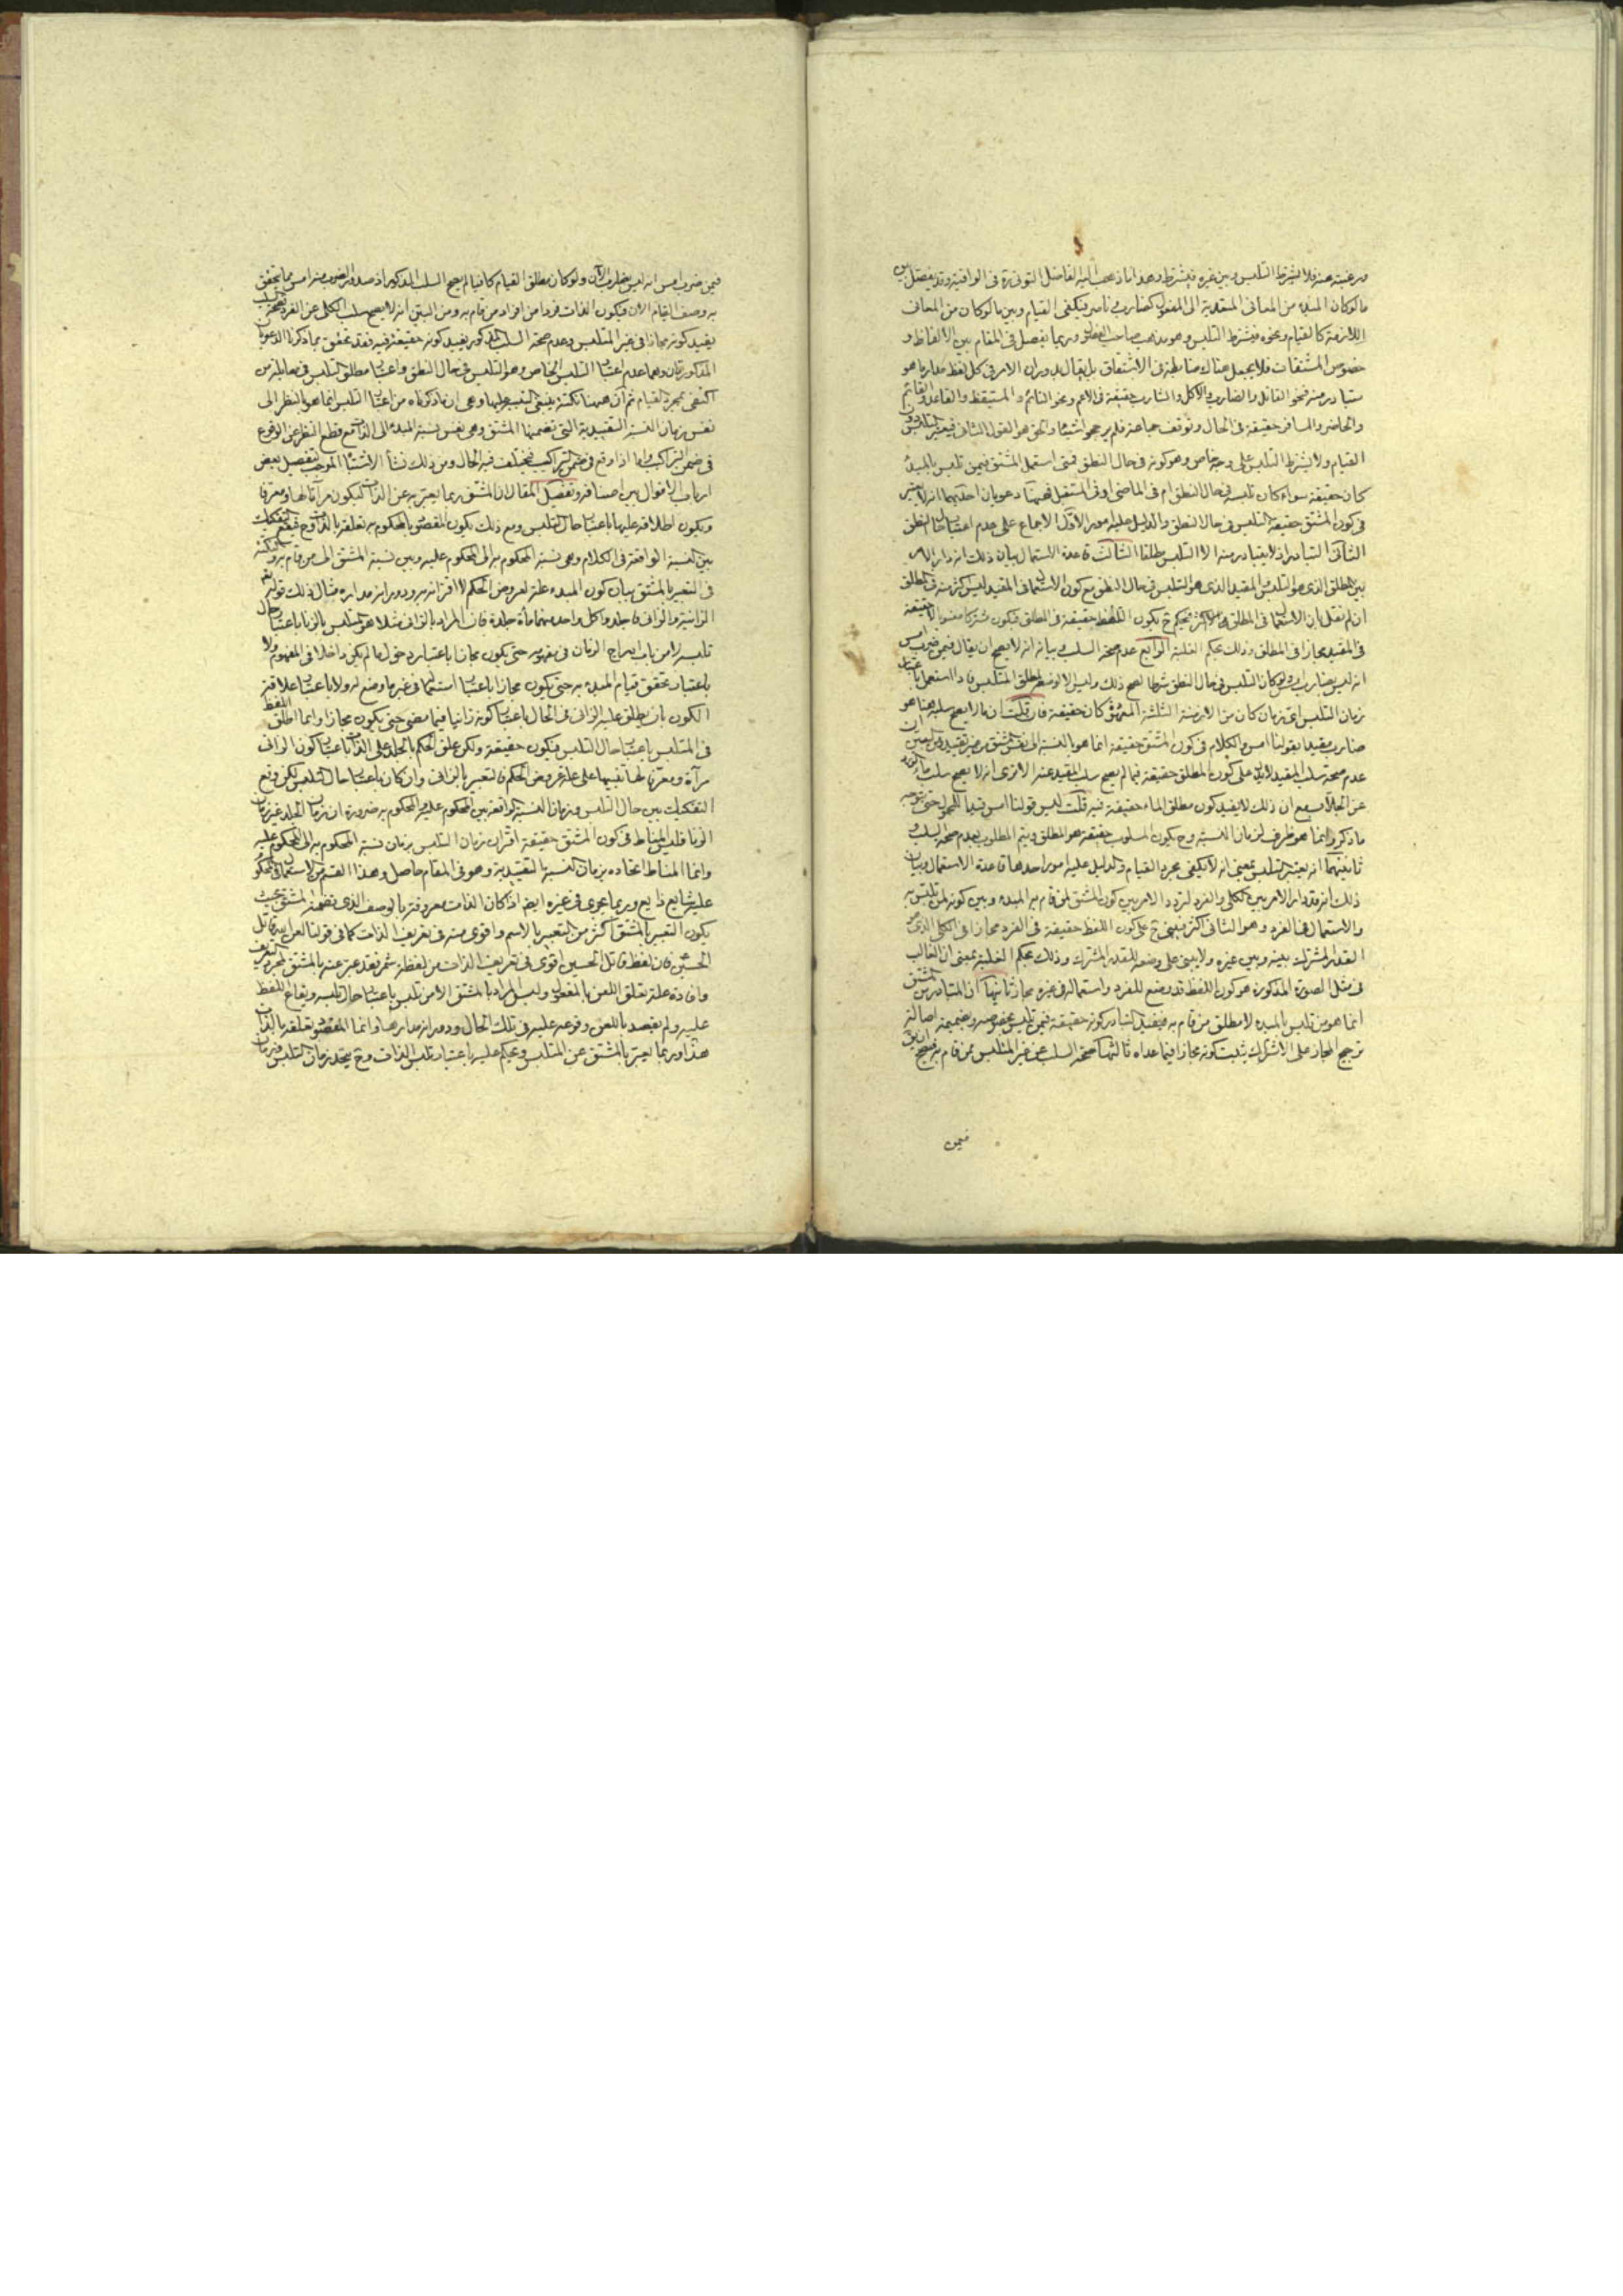 ورغبته عنه فلا يشترط التلبس وبين غيره فيشترط وهذا ما ذهب اليه الفاضل التوني ره في الوافية وقد يفصل بين
ما لو كان المبدء من المعاني المتعدية الى المفعول كضارب وناصر فيكفى القيام وبين ما لو كان من المعاني
اللازمة كالقيام ونحوه فيشترط التلبس وهو مذهب صاحب الفصول وربما يفصل في المقام بين الالفاظ و
خصوص المشتقات فلا يجعل هناك ضابطة في الاشتقاق بل يقال بدوران الامر في كل لفظ مدار ما هو
يتبادر منه فنحو القاتل والضارب والاكل والشارب حقيقة في الاعم ونحو النائم والمستيقظ والقاعد والقائم
والحاضر والمسافر حقيقة في الحال وتوقف جماعة فلم يرجحوا شيئا والحق هو القول الثاني فيعتبر التلبس دون
القيام ولا يشترط التلبس على وجه خاص وهو كونه في حال النطق فمتى استعمل المشتق فيمن تلبس بالمبدء
كان حقيقة سواء كان تلبسه في حال النطق ام في الماضي او في المستقبل فهيهنا دعويان احديهما انه لا يعتبر
في كون المشتق حقيقة التلبس في حال النطق والدليل عليه امور الاول الاجماع على عدم اعتبار حال النطق
الثاني التبادر اذ لا يتبادر منه الا التلبس مطلقا الثالث قاعدة الاستعمال بيان ذلك انه دار الامر
بين المطلق الذي هو التلبس والمقيد الذي هو التلبس في حال النطق مع كون الاستعمال في المقيد ليس اكثر منه في المطلق
ان لم نقل بان الاستعمال في المطلق اكثر فيحكم ح بكون اللفظ حقيقة في المطلق فيكون مشتركا معنويا لا حقيقة
في المقيد مجازا في المطلق وذلك بحكم الغلبة الرابع عدم صحة السلب وبيانه انه لا يصح ان يقال فيمن ضرب امس
انه ليس بضارب ولو كان التلبس في حال النطق شرطا لصح ذلك وليس الا لوضعه لمطلق المتلبس فاذا استعمل باعتبار
زمان التلبس اي زمان كان من الازمنة الثلثة المعروفة كان حقيقة فان قلت ان ما لا يصح سلبه هنا هو
ضارب مقيدا بقولنا امس والكلام في كون المشتق حقيقة انما هو بالنسبة الى نفس المشتق من غير تقييد ومن البين ان
عدم صحة سلب المقيد لا يدل على كون المطلق حقيقة فيما لم يصح سلب المقيد عنه الا ترى انه لا يصح سلب ماء الورد
عن الجلاب مع ان ذلك لا يفيد كون مطلق الماء حقيقة فيه قلت ليس قولنا امس قيدا للمحمول حتى يتوجه
ما ذكر وانما هو ظرف لزمان النسبة وح يكون المسلوب حقيقة هو المطلق ويتم المطلوب بعدم صحة السلب و
ثانيتهما انه يعتبر التلبس بمعنى انه لا يكفى مجرد القيام والدليل عليه امور احدها قاعدة الاستعمال وبيان
ذلك انه قد دار الامر بين الكلى والفرد لتردد الامر بين كون المشتق لمن قام به المبدء وبين كونه لمن تلبس به
والاستعمال في الفرد وهو الثاني اكثر فيبنى ح على كون اللفظ حقيقة في الفرد مجازا في الكلى الذي هو
القدر المشترك بينه وبين غيره ولا يبنى على وضعه للقدر المشترك وذلك بحكم الغلبة بمعنى ان الغالب
في مثل الصورة المذكورة هو كون اللفظ قد وضع للفرد واستعماله في غيره مجاز ثانيها ان المتبادر من المشتق
انما هو من تلبس بالمبدء لا مطلق من قام به فيفيد التبادر كونه حقيقة فيمن تلبس بخصوصه وبضميمة اصالة
ترجيح المجاز على الاشتراك يثبت كونه مجازا فيما عداه ثالثها صحة السلب عن غير المتلبس ممن قام به فيصح ان يق
فيمن
فيمن ضرب امس انه ليس بضارب الآن ولو كان مطلق القيام كافيا لم يصح السلب المذكور اذ صدور الضرب منه امس مما يحقق
به وصف القيام الآن فيكون الذات فردا من افراد من قام به ومن البين انه لا يصح سلب الكلى عن الفرد فصحة السلب
يفيد كونه مجازا في غير المتلبس وعدم صحة السلب المذكور يفيد كونه حقيقة فيه فقد تحقق بما ذكرنا الدعويان
المذكورتان وهما عدم اعتبار التلبس الخاص وهو التلبس في حال النطق واعتبار مطلق التلبس في مقابلة من
اكتفى بمجرد القيام ثم ان ههنا نكتة ينبغي التنبيه عليها وهى ان ما ذكرناه من اعتبار التلبس انما هو بالنظر الى
نفس زمان النسبة التقييدية التى تضمنها المشتق وهى نفس نسبة المبدء الى الذات مع قطع النظر عن الوقوع
في ضمن التراكيب واما اذا وقع في ضمن التراكيب فيختلف فيه الحال ومن ذلك نشأ الاشتباه الموجب لتفصيل بعض
ارباب الاقوال بين اصنافه وتفصيل المقال ان المشتق ربما يعتبر به عن الذات ليكون مرآتا لها ومعرفا
ويكون اطلاقه عليها باعتبار حال التلبس ومع ذلك يكون المقصود بالمحكوم به تعلقه بالذات وح فيقع التفكيك
بين النسبة الواقعة في الكلام وهى نسبة المحكوم به الى المحكوم عليه وبين نسبة المشتق الى من قام به والنكتة
في التعبير بالمشتق بيان كون المبدء علة لعروض الحكم لا اقترانه به ودورانه مداره مثال ذلك قوله تعالى
الزانية والزاني فاجلدوا كل واحد منهما مأة جلدة فان المراد بالزاني مثلا هو المتلبس بالزنا باعتبار حال
تلبسه لا من باب ادراج الزمان في مفهومه حتى يكون مجازا باعتبار دخول ما لم يكن داخلا في المفهوم ولا
باعتبار تحقق قيام المبدء به حتى يكون مجازا باعتبار استعماله في غير ما وضع له ولا باعتبار علاقة
الكون بان يطلق عليه الزاني في الحال باعتبار كونه زانيا فيما مضى حتى يكون مجازا وانما اطلق اللفظ
في المتلبس باعتبار حال التلبس فيكون حقيقة ولكن علق الحكم بالجلد على الذات باعتبار كون الزاني
مرآة ومعرفا لها تنبيها على علة عروض الحكم فالتعبير بالزاني وان كان باعتبار حال التلبس لكن وقع
التفكيك بين حال التلبس وزمان النسبة الواقعة بين المحكوم عليه والمحكوم به ضرورة ان زمان الجلد غير زمان
الزنا فليس المناط في كون المشتق حقيقة اقتران زمان التلبس بزمان نسبة المحكوم به الى المحكوم عليه
وانما المناط اتحاده بزمان النسبة التقييدية وهو في المقام حاصل وهذا القسم من الاستعمال في المحكوم
عليه شايع ذايع وربما يجرى في غيره ايضا اذا كان الذات معروفة بالوصف الذي تضمنه المشتق بحيث
يكون التعبير بالمشتق اكثر من التعبير بالاسم واقوى منه في تعريف الذات كما في قولنا العن اللهم قاتل
الحسين فان لفظ قاتل الحسين اقوى في تعريف الذات من لفظة شمر فقد عبر عنه بالمشتق لمجرد التعريف
وافادة علة تعلق اللعن بالمفعول وليس المراد بالمشتق الا من تلبس باعتبار حال تلبسه وايقاع اللفظ
عليه ولم يقصد باللعن وقوعه عليه في تلك الحال ودورانه مدارها وانما المقصود تعلقه بالذات
هذا وربما يعبر بالمشتق عن المتلبس ويحكم عليه باعتبار تلبس الذات وح يتحد زمان التلبس وزمان